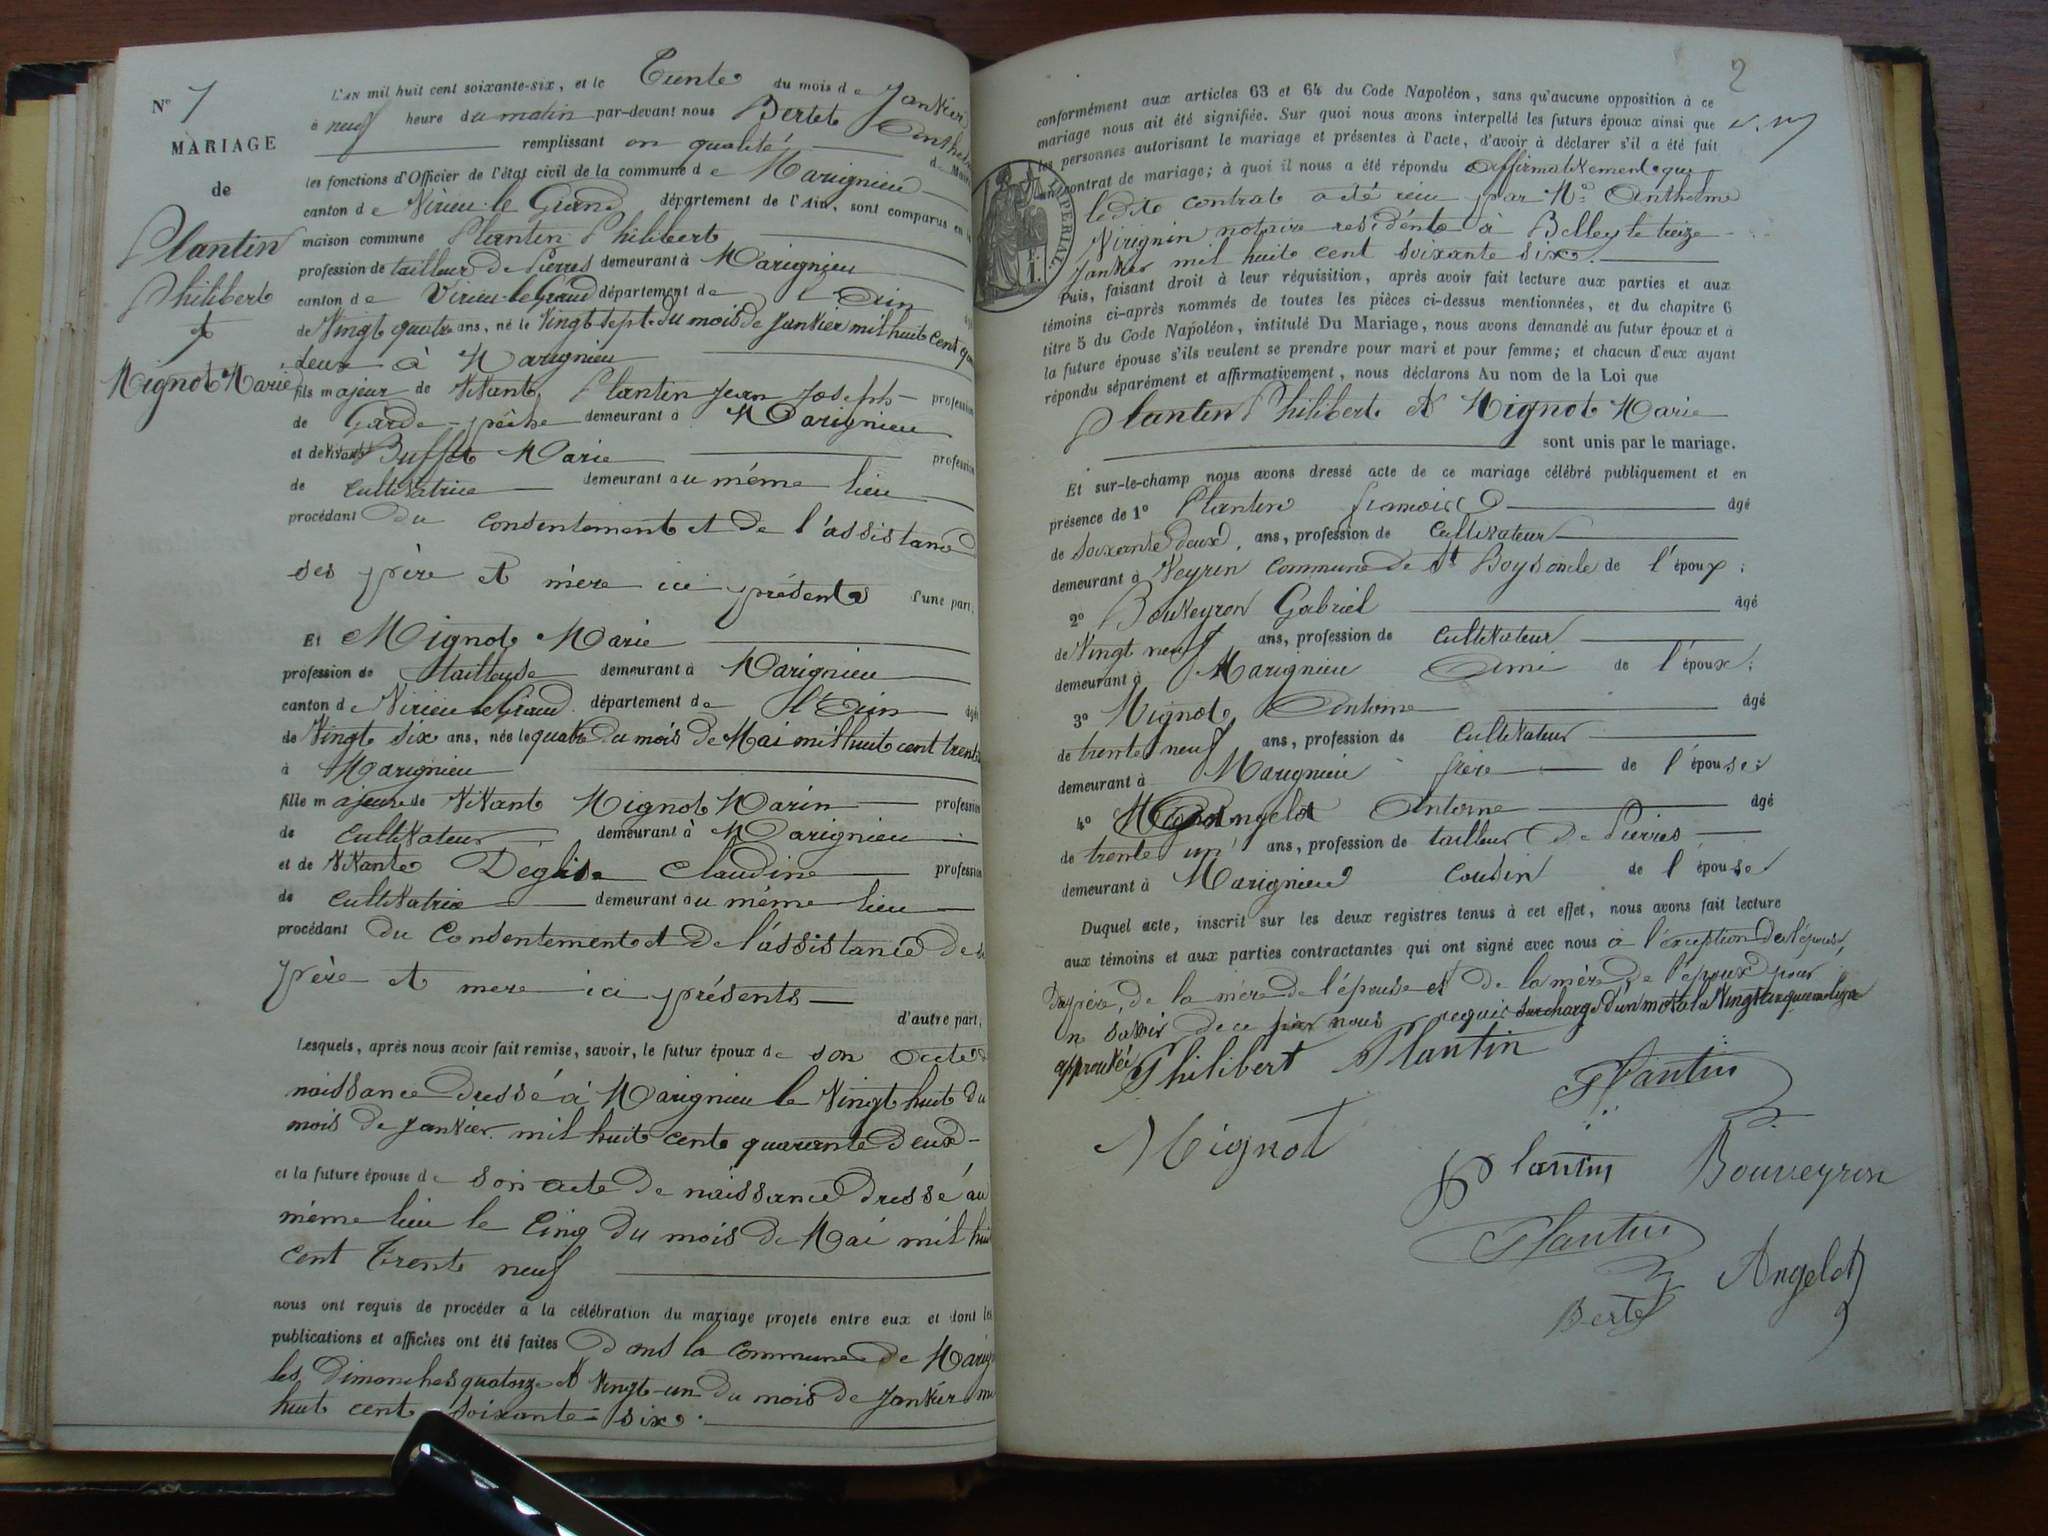 N° 1
MARIAGE
de
Plantin
Philibert
&
Mignot Marie
L'AN mil huit cent soixante-six, et le Trente du mois de Janvier
à neuf heure du matin par-devant nous Bertet Anthelme
remplissant en qualité de Maire
les fonctions d'Officier de l'état civil de la commune de Marignieu
canton de Virieu-le-Grand département de l'Ain, sont comparus en la
maison commune Plantin Philibert
profession de tailleur de Pierres demeurant à Marignieu
canton de Virieu-le-Grand département de l'Ain âgé
de Vingt quatre ans, né le Vingt-sept du mois de Janvier mil huit cent qua
deux à Marignieu
fils majeur de Vivant Plantin Jean Joseph profession
de Garde-pêche demeurant à Marignieu
et de Vivante Buffet Marie profession
de cultivatrice demeurant au même lieu
procédant du consentement et de l'assistance
ses père et mère ici présents d'une part,
Et Mignot Marie
profession de tailleuse demeurant à Marignieu
canton de Virieu le Grand département de l'Ain âgée
de Vingt six ans, née le quatre du mois de Mai mil huit cent trente
à Marignieu
fille majeure de Vivant Mignot Marin profession
de cultivateur demeurant à Marignieu
et de Vivante Deglise Claudine profession
de cultivatrice demeurant au même lieu
procédant du Consentement et de l'assistance de
père et mère ici présents
d'autre part,
Lesquels, après nous avoir fait remise, savoir, le futur époux de son acte
naissance dressé à Marignieu le Vingt huit du
mois de Janvier mil huit cent quarante deux
et la future épouse de son acte de naissance dressé au
même lieu le Cinq du mois de Mai mil huit
cent trente neuf
nous ont requis de procéder à la célébration du mariage projeté entre eux et dont les
publications et affiches ont été faites dans la Commune de Marign
les Dimanches quatorze et Vingt-un du mois de Janvier mi
huit cent soixante-six.
2
conformément aux articles 63 et 64 du Code Napoléon, sans qu'aucune opposition à ce
mariage nous ait été signifiée. Sur quoi nous avons interpellé les futurs époux ainsi que
les personnes autorisant le mariage et présentes à l'acte, d'avoir à déclarer s'il a été fait
un contrat de mariage; à quoi il nous a été répondu affirmativement que
ledit contrat a été reçu par Me Anthelme
Virignin notaire résident à Belley le treize
Janvier mil huit cent soixante six.
IMPERIAL
Puis, faisant droit à leur réquisition, après avoir fait lecture aux parties et aux
témoins ci-après nommés de toutes les pièces ci-dessus mentionnées, et du chapitre 6
titre 5 du Code Napoléon, intitulé Du Mariage, nous avons demandé au futur époux et à
la future épouse s'ils veulent se prendre pour mari et pour femme; et chacun d'eux ayant
répondu séparément et affirmativement, nous déclarons Au nom de la Loi que
Plantin Philibert et Mignot Marie
sont unis par le mariage.
Et sur-le-champ nous avons dressé acte de ce mariage célébré publiquement et en
présence de 1° Plantin françois âgé
de soixante deux, ans, profession de cultivateur
demeurant à Veyrin Commune de St Boys oncle de l'époux;
2° Bouveyron Gabriel âgé
de Vingt neuf ans, profession de cultivateur
demeurant à Marignieu Ami de l'époux;
3° Mignot Antoine âgé
de trente neuf ans, profession de cultivateur
demeurant à Marignieu frère de l'épouse;
4° Angelot Antoine âgé
de trente un ans, profession de tailleur de Pierres
demeurant à Marignieu cousin de l'épouse
Duquel acte, inscrit sur les deux registres tenus à cet effet, nous avons fait lecture
aux témoins et aux parties contractantes qui ont signé avec nous à l'exception de l'épouse,
du père, de la mère de l'épouse et de la mère de l'époux pour
n savoir de ce par nous requis surcharge d'un mot à la Vingt cinquième ligne
approuvée
Philibert Plantin
Plantin
Mignot
Plantin
Bouveyron
Plantin
Angelot
Bertet